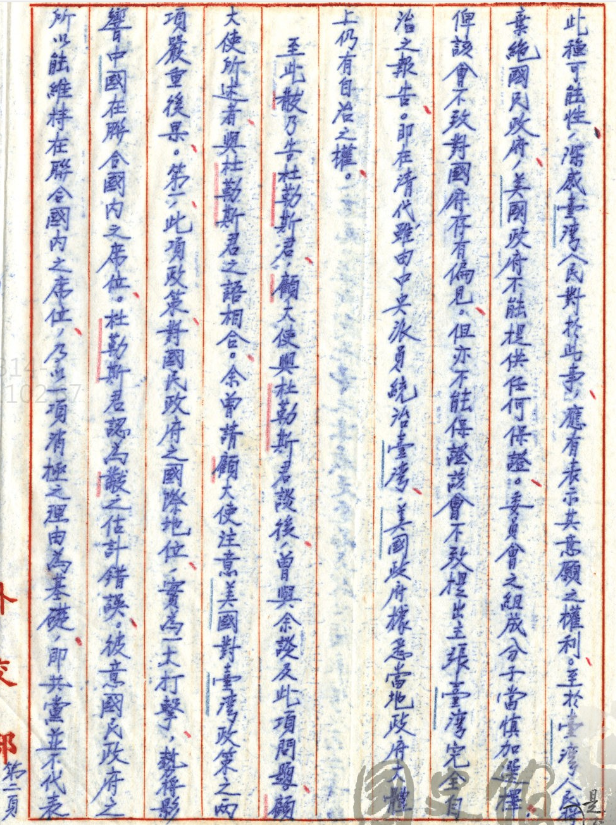 此種可能性，深感臺灣人民對於此事，應有表示其意願之權利。至於臺灣人民
棄絕國民政府，美國政府不能提供任何保證。委員會之組成分子當慎加選擇
俾該會不致對國府存有偏見，但亦不能保證該會不致提出主張臺灣完全自
治之報告。即在清代雖由中央派員統治臺灣，美國政府據悉當地政府大體
上仍有自治之權。
至此敝乃告杜勒斯君，顧大使與杜勒斯君談後，曾與余談及此項問題，顧
大使所述者與杜勒斯君之語相合。余曾請顧大使注意美國對臺灣政策之兩
項嚴重後果。第一，此項政策對國民政府之國際地位，實為一大打擊，勢將影
響中國在聯合國內之席位。杜勒斯君認為敝之估計錯誤。彼意國民政府之
所以能維持在聯合國內之席位，乃以一項消極之理由為基礎，即共黨並不代表
外交部
第二頁
國史館